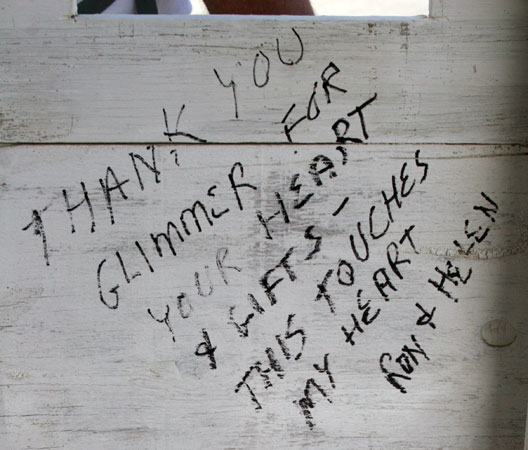 THANK YOU
GLIMMER FOR
YOUR HEART
& GIFTS -
THIS TOUCHES
MY HEART
RON & HELEN